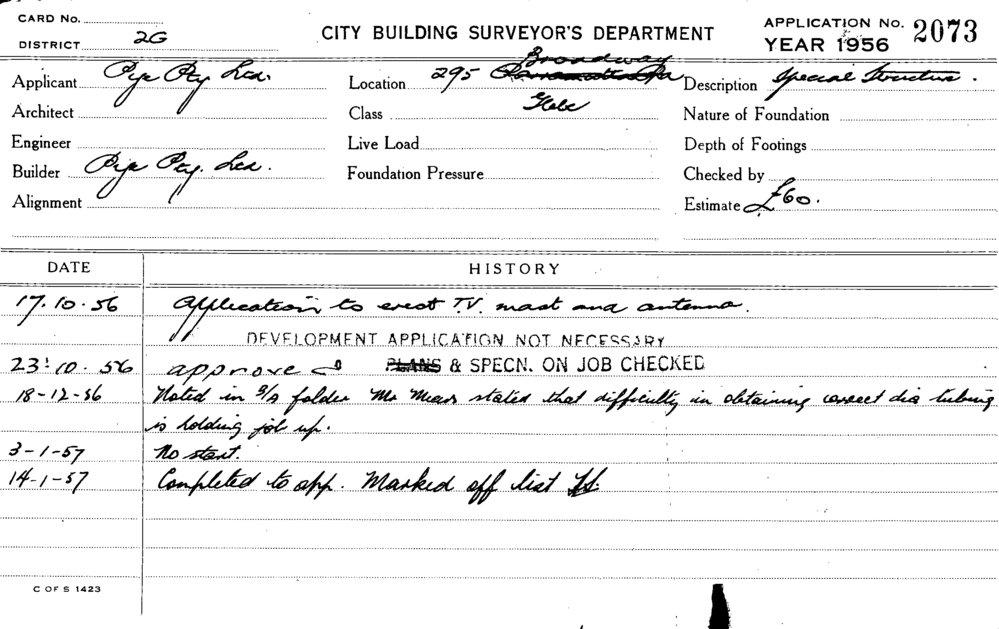 CARD No.
DISTRICT 2G
CITY BUILDING SURVEYOR'S DEPARTMENT
APPLICATION No. 2073
YEAR 1956
Applicant Pye Pty Ltd.
Location 295 Parramatta Rd Broadway
Description Special Structure.
Architect
Class Glebe
Nature of Foundation
Engineer
Live Load
Depth of Footings
Builder Pye Pty. Ltd.
Foundation Pressure
Checked by
Alignment
Estimate £60.
DATE HISTORY
17.10.56 Application to erect T.V. mast and antenna.
DEVELOPMENT APPLICATION NOT NECESSARY
23.10.56 approved PLANS & SPECN. ON JOB CHECKED
18-12-56 Noted in folder Mr Mears stated that difficulty in obtaining correct dia tubing
is holding job up.
3-1-57 No start.
14-1-57 Completed to app. Marked off list
C OF S 1423